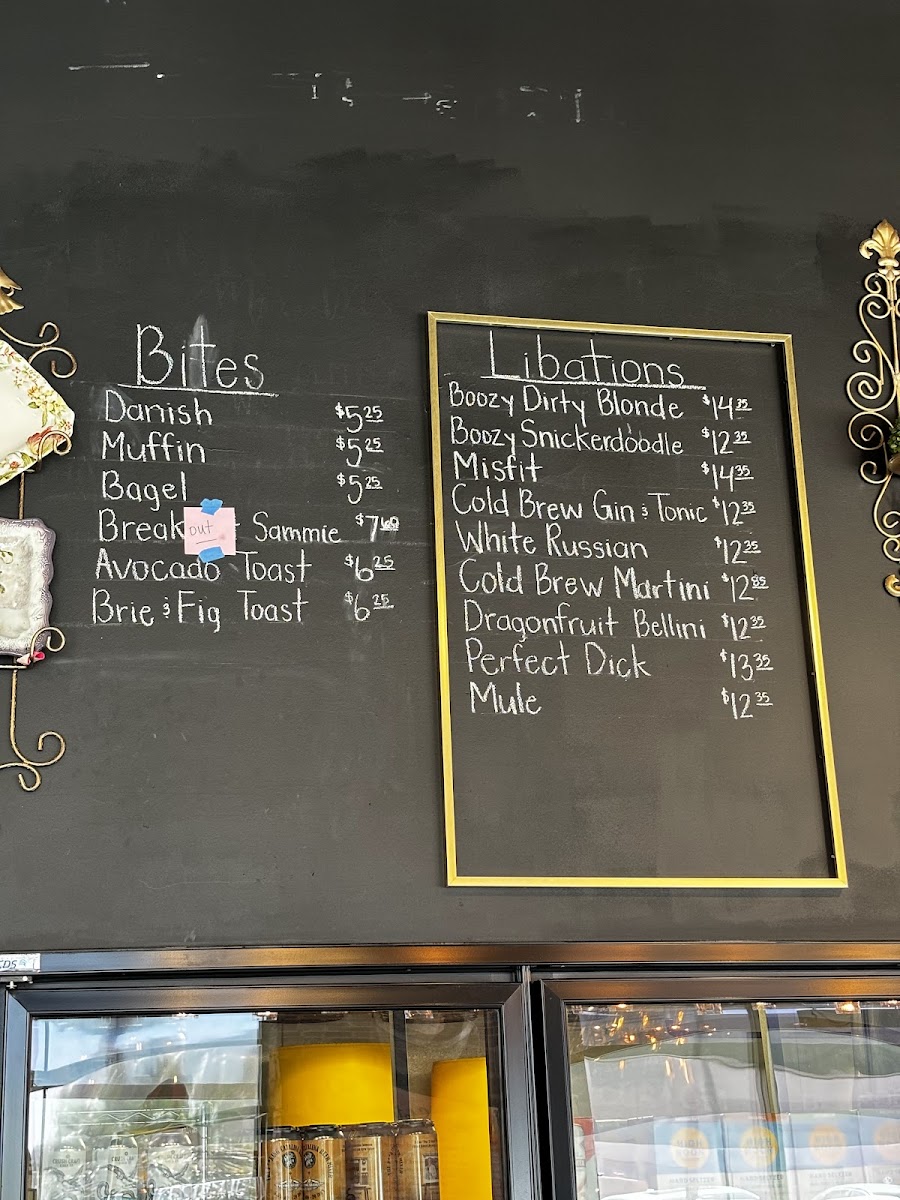 Bites
Danish $5.25
Muffin $5.25
Bagel $5.25
Break out Sammie $7.60
Avocado Toast $6.25
Brie & Fig Toast $6.25
Libations
Boozy Dirty Blonde $14.35
Boozy Snickerdoodle $12.35
Misfit $14.35
Cold Brew Gin & Tonic $12.35
White Russian $12.35
Cold Brew Martini $12.85
Dragonfruit Bellini $12.35
Perfect Dick $13.35
Mule $12.35